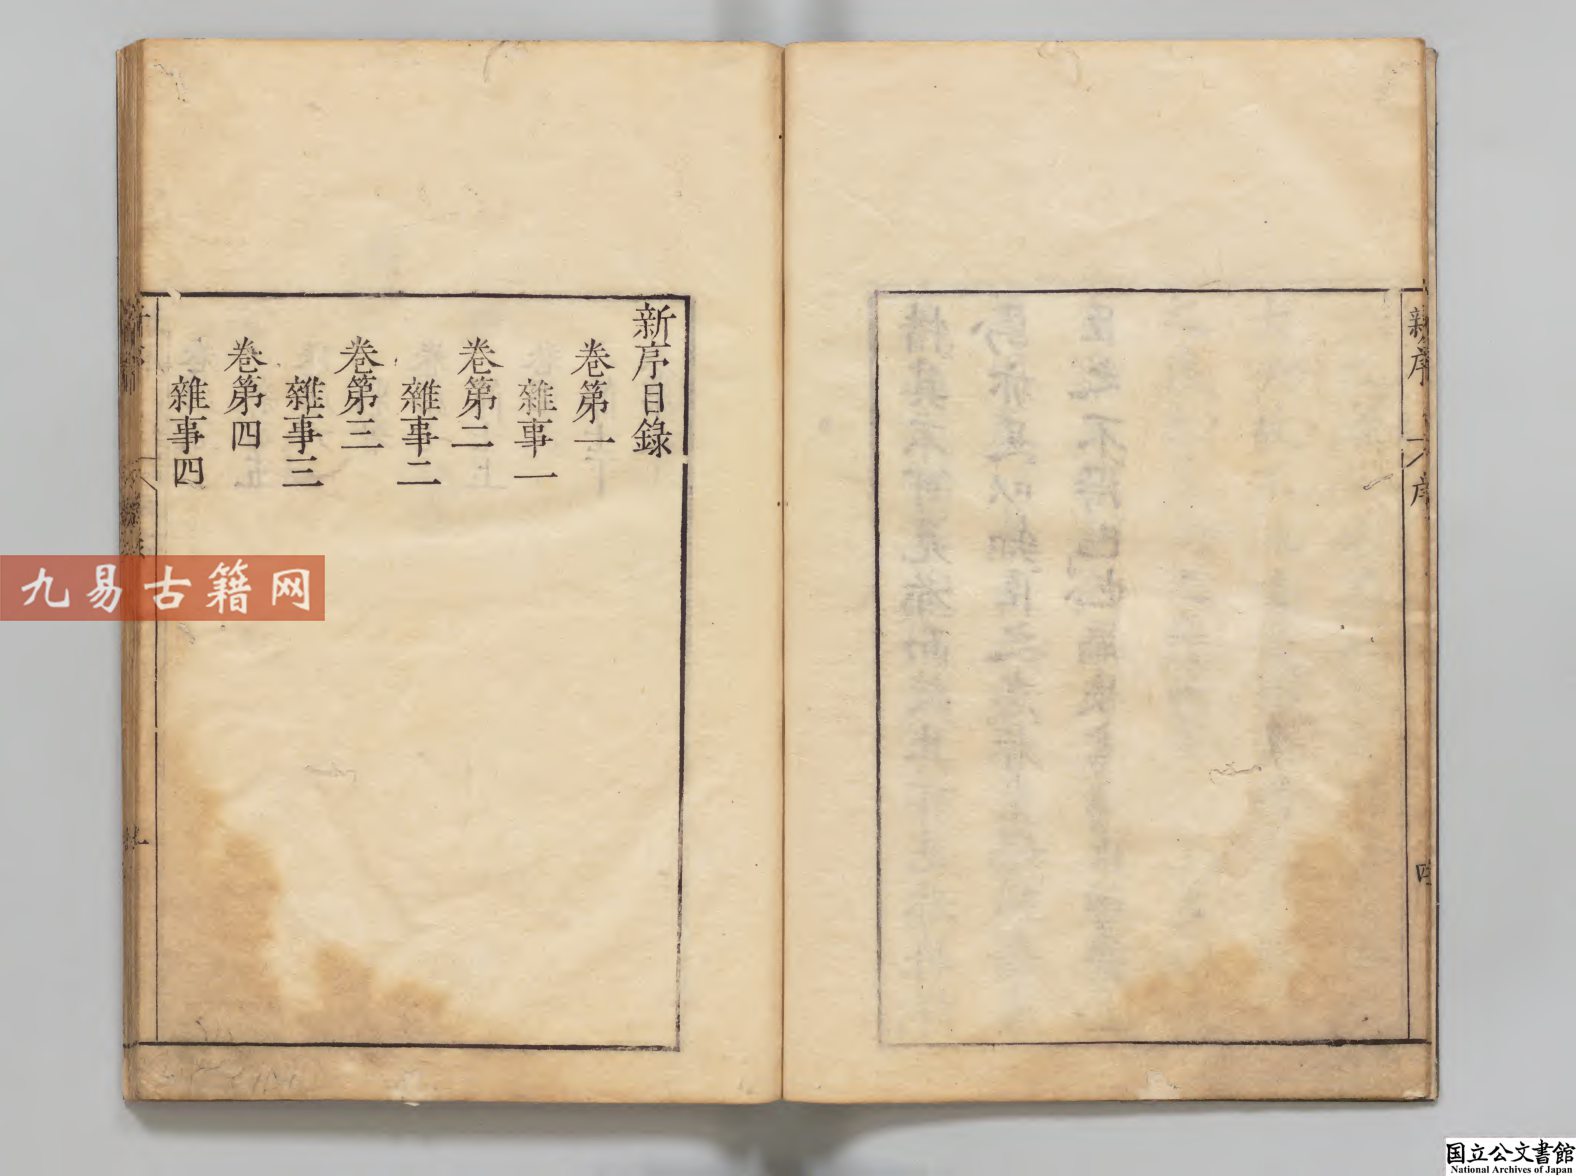 新序
序
四
新序目錄
卷第一
雜事一
卷第二
雜事二
卷第三
雜事三
卷第四
雜事四
九易古籍网
国立公文書館
National Archives of Japan